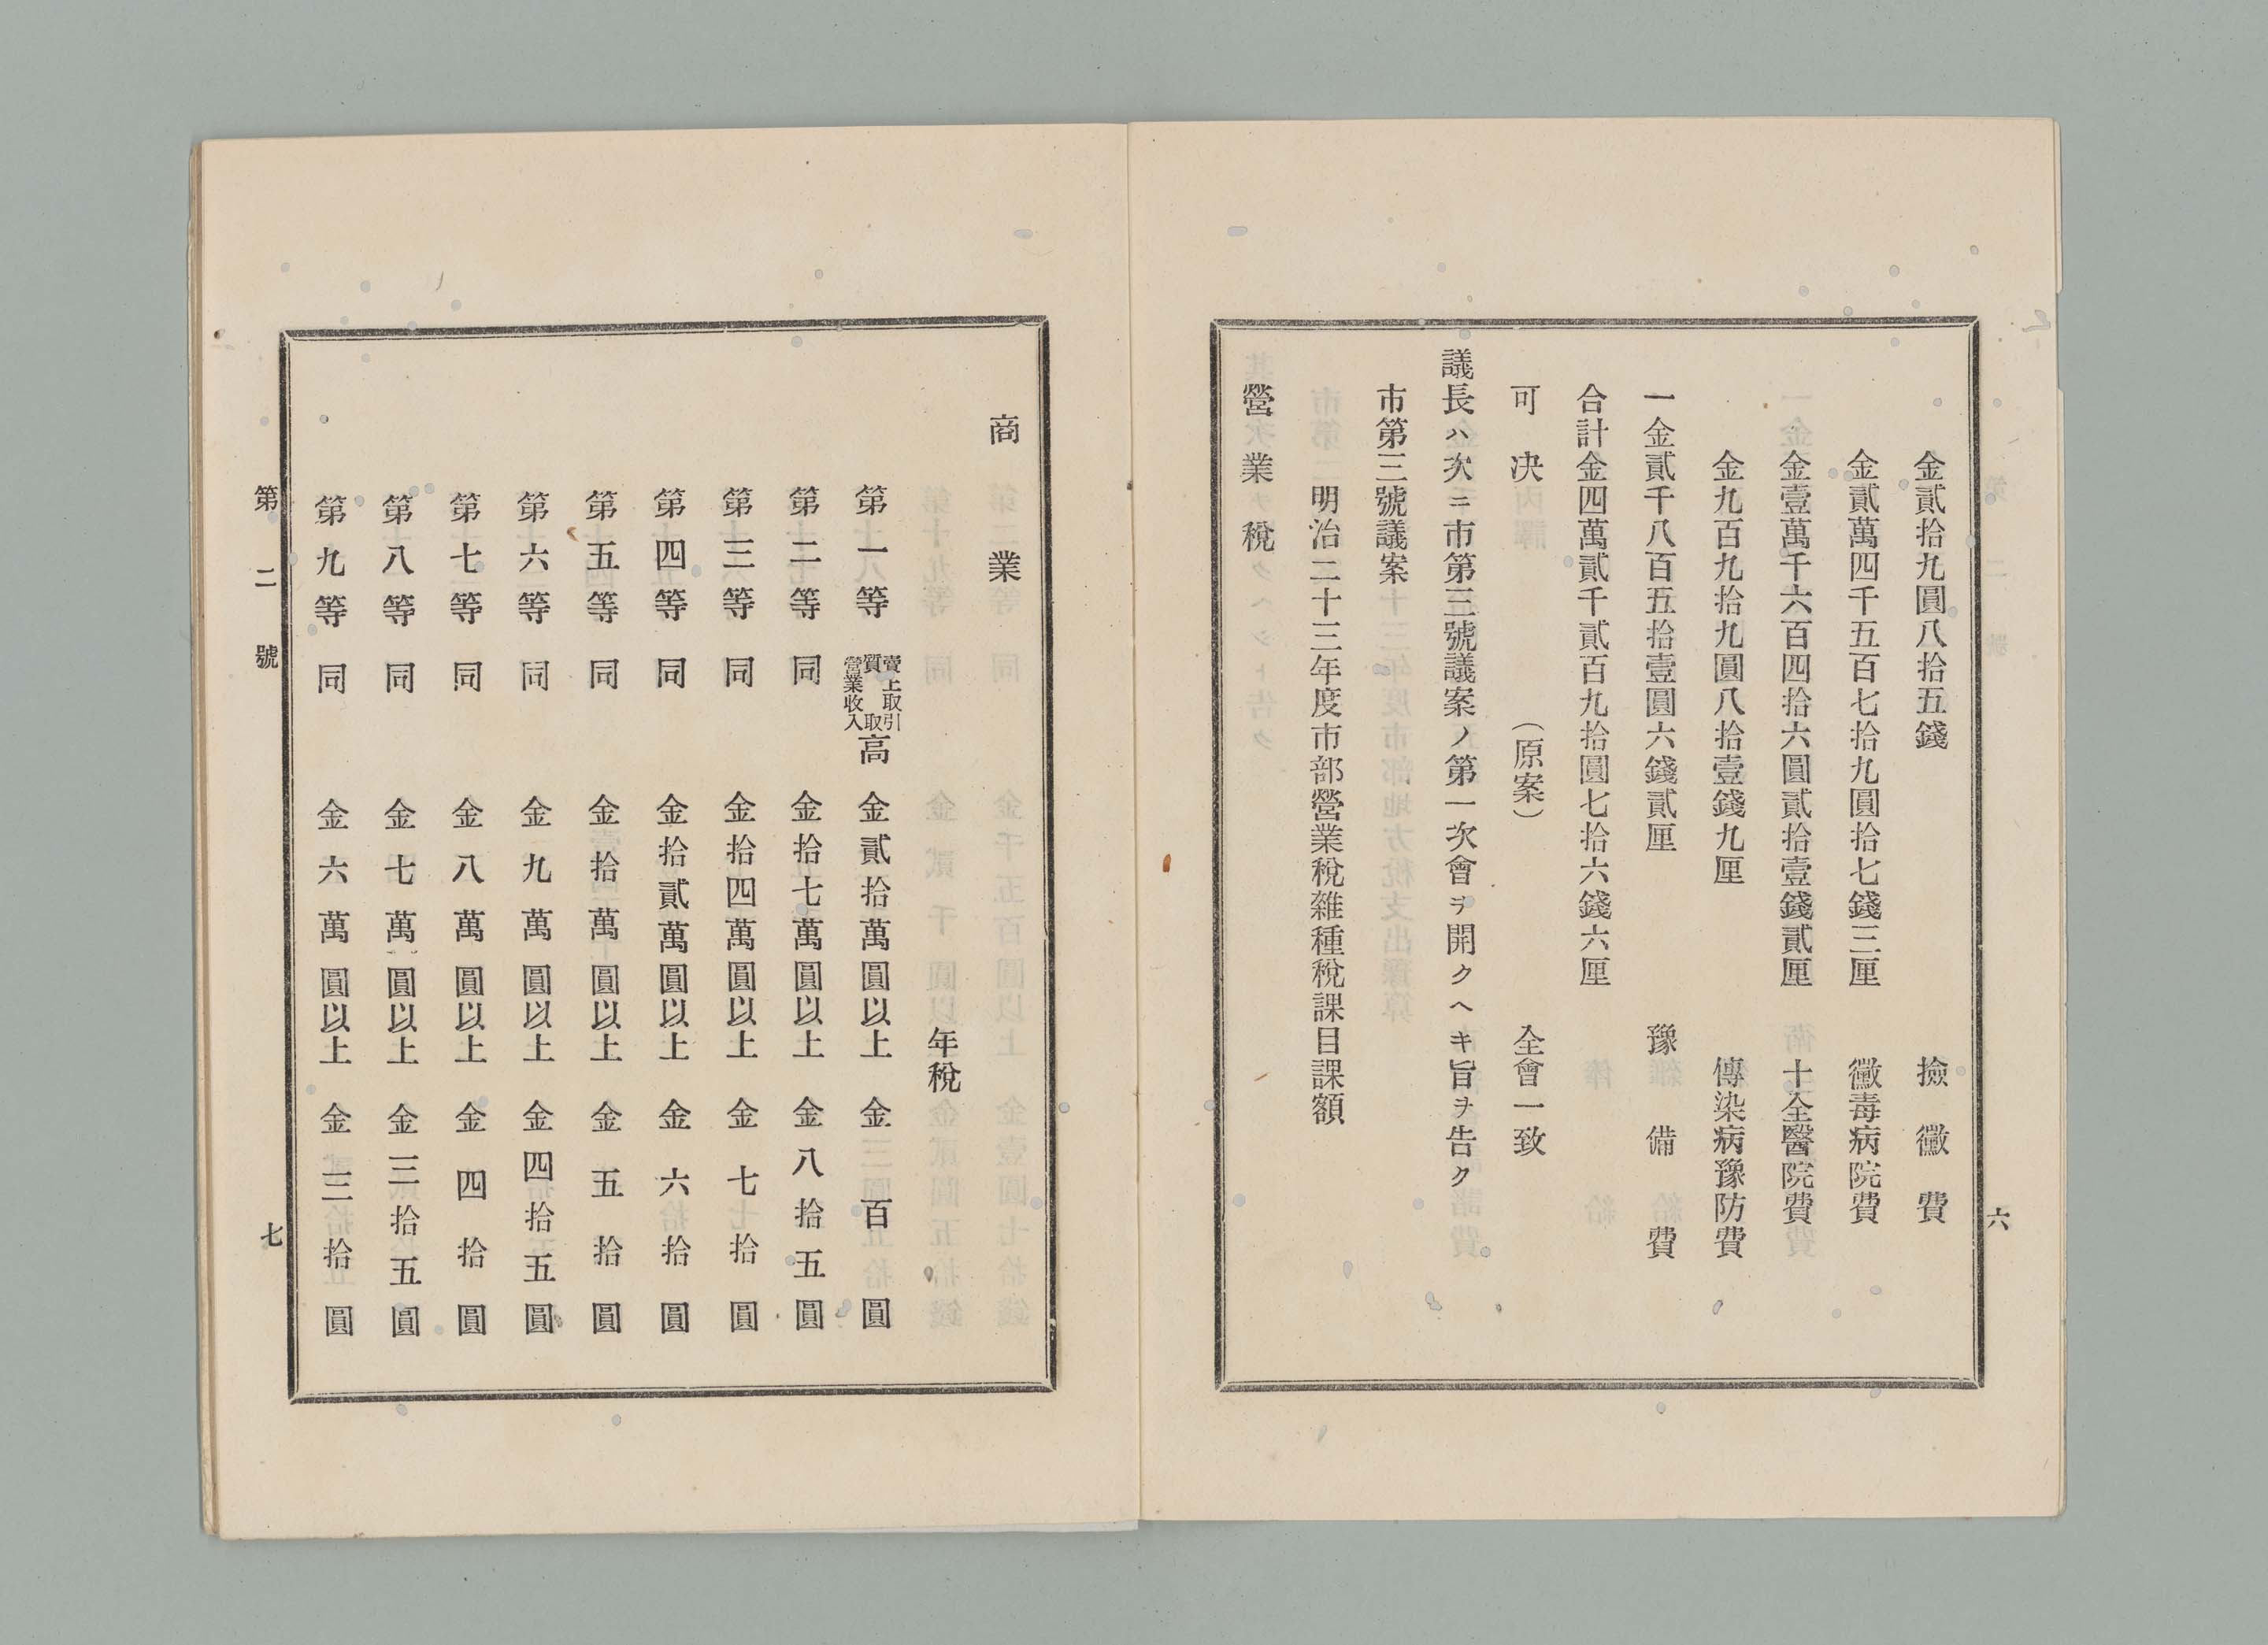 金貳拾九圓八拾五錢 撿黴費
金貳萬四千五百七拾九圓拾七錢三厘 黴毒病院費
金壹萬千六百四拾六圓貳拾壹錢貳厘 十全醫院費
金九百九拾九圓八拾壹錢九厘 傳染病豫防費
一金貳千八百五拾壹圓六錢貳厘 豫備費
合計金四萬貳千貳百九拾圓七拾六錢六厘
可決 (原案) 全會一致
議長ハ次ニ市第三號議案ノ第一次會ヲ開クヘキ旨ヲ告ク
市第三號議案
明治二十三年度市部營業稅雜種稅課目課額
營業稅
六
商業
年稅
第一等 賣上取引 質取 營業收入 高 金貳拾萬圓以上 金百圓
第二等 同 金拾七萬圓以上 金八拾五圓
第三等 同 金拾四萬圓以上 金七拾圓
第四等 同 金拾貳萬圓以上 金六拾圓
第五等 同 金拾萬圓以上 金五拾圓
第六等 同 金九萬圓以上 金四拾五圓
第七等 同 金八萬圓以上 金四拾圓
第八等 同 金七萬圓以上 金三拾五圓
第九等 同 金六萬圓以上 金三拾圓
第二號 七